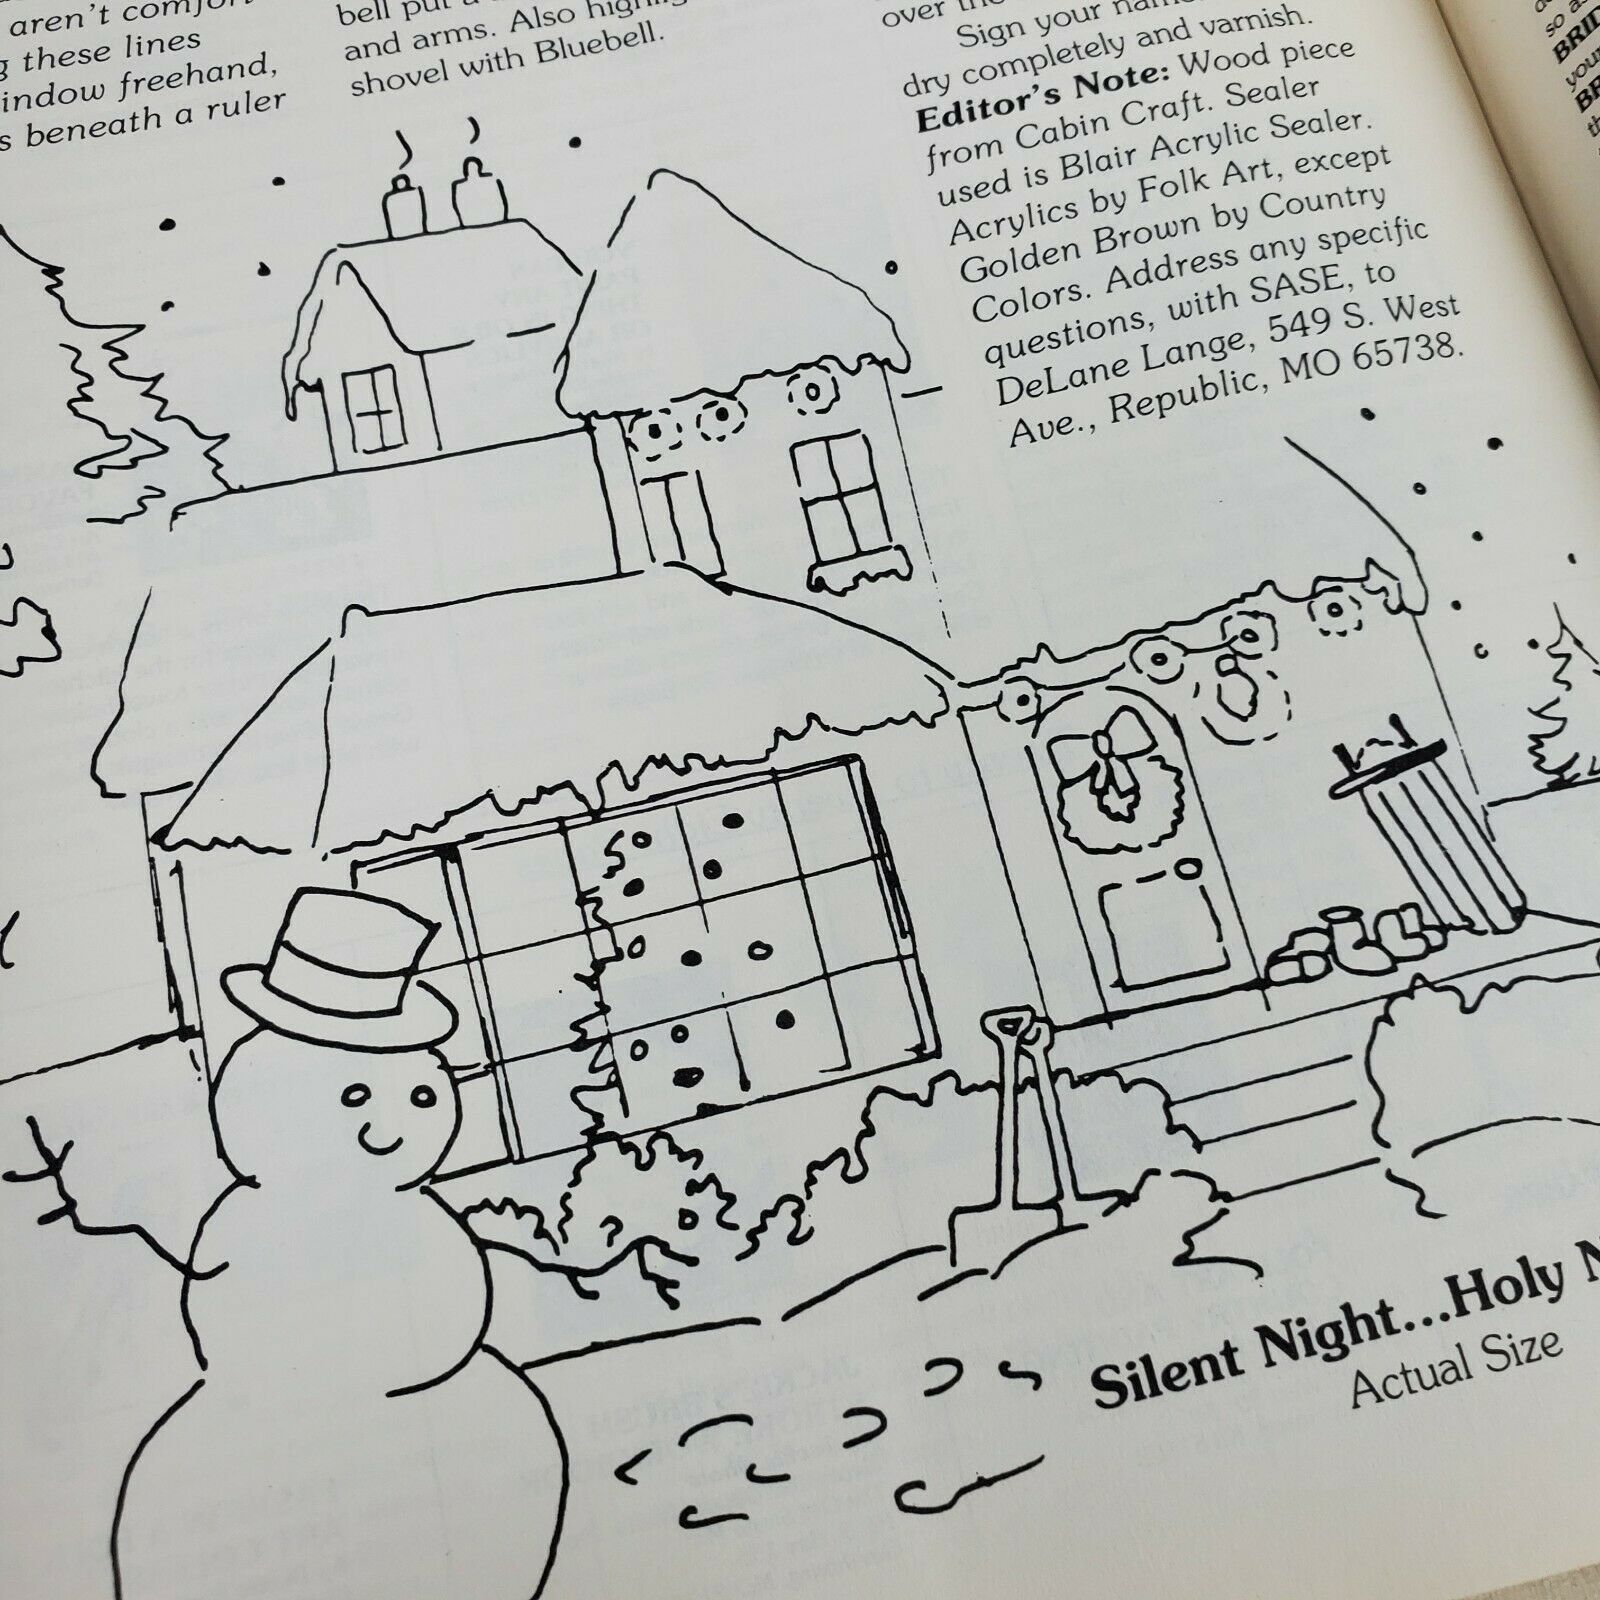 aren't comfort
these lines
indow freehand,
s beneath a ruler
bell put a
and arms. Also highlig
shovel with Bluebell.
over the
Sign your name
dry completely and varnish.
Editor's Note: Wood piece
from Cabin Craft. Sealer
used is Blair Acrylic Sealer.
Acrylics by Folk Art, except
Golden Brown by Country
Colors. Address any specific
questions, with SASE, to
DeLane Lange, 549 S. West
Ave., Republic, MO 65738.
so as
BRID
your
BR
th
Silent Night...Holy N
Actual Size